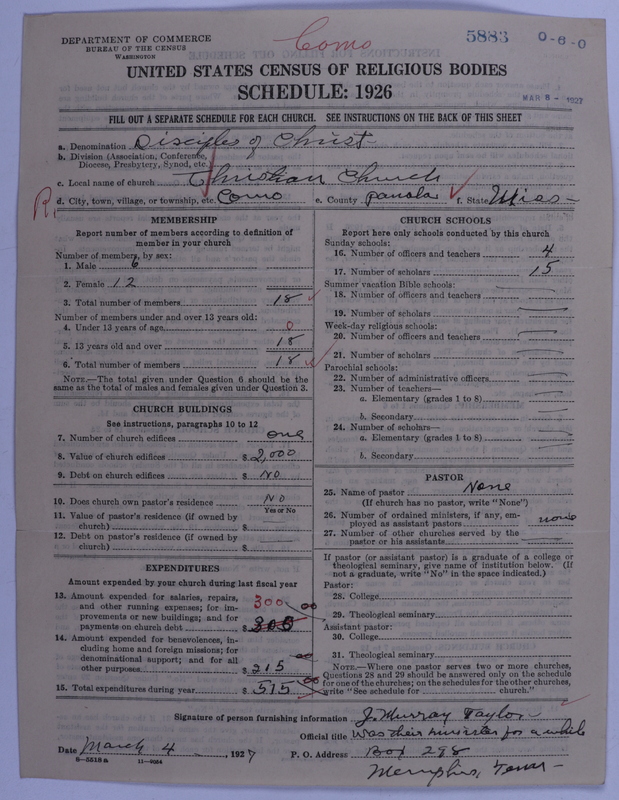 Como
5883 0-6-0
DEPARTMENT OF COMMERCE
BUREAU OF THE CENSUS
WASHINGTON
UNITED STATES CENSUS OF RELIGIOUS BODIES
SCHEDULE: 1926
MAR 8 - 1927
FILL OUT A SEPARATE SCHEDULE FOR EACH CHURCH. SEE INSTRUCTIONS ON THE BACK OF THIS SHEET
a. Denomination Disciples of Christ
b. Division (Association, Conference,
Diocese, Presbytery, Synod, etc.
c. Local name of church Christian Church
R. d. City, town, village, or township, etc. Como e. County Panola f. State Miss-
MEMBERSHIP
Report number of members according to definition of
member in your church
Number of members, by sex:
1. Male 6
2. Female 12
3. Total number of members 18
Number of members under and over 13 years old:
4. Under 13 years of age 0
5. 13 years old and over 18
6. Total number of members 18
NOTE.—The total given under Question 6 should be the
same as the total of males and females given under Question 3.
CHURCH BUILDINGS
See instructions, paragraphs 10 to 12
7. Number of church edifices one
8. Value of church edifices $ 2,000
9. Debt on church edifices $ NO
10. Does church own pastor's residence NO
Yes or No
11. Value of pastor's residence (if owned by
church) $
12. Debt on pastor's residence (if owned by
church) $
EXPENDITURES
Amount expended by your church during last fiscal year
13. Amount expended for salaries, repairs,
and other running expenses; for im-
provements or new buildings; and for
payments on church debt $ 300 00
14. Amount expended for benevolences, in-
cluding home and foreign missions; for
denominational support; and for all
other purposes $ 215 00
15. Total expenditures during year $ 515 00
CHURCH SCHOOLS
Report here only schools conducted by this church
Sunday schools:
16. Number of officers and teachers 4
17. Number of scholars 15
Summer vacation Bible schools:
18. Number of officers and teachers
19. Number of scholars
Week-day religious schools:
20. Number of officers and teachers
21. Number of scholars
Parochial schools:
22. Number of administrative officers
23. Number of teachers—
a. Elementary (grades 1 to 8)
b. Secondary
24. Number of scholars—
a. Elementary (grades 1 to 8)
b. Secondary
PASTOR
25. Name of pastor None
(If church has no pastor, write "None")
26. Number of ordained ministers, if any, em-
ployed as assistant pastors none
27. Number of other churches served by the
pastor or his assistants
If pastor (or assistant pastor) is a graduate of a college or
theological seminary, give name of institution below. (If
not a graduate, write "No" in the space indicated.)
Pastor:
28. College
29. Theological seminary
Assistant pastor:
30. College
31. Theological seminary
NOTE.—Where one pastor serves two or more churches,
Questions 28 and 29 should be answered only on the schedule
for one of the churches; on the schedules for the other churches,
write "See schedule for church."
Signature of person furnishing information J. Murray Taylor
Official title Was their minister for a while
Date March 4, 1927 P. O. Address Box 298
8-5518a 11-9054
Memphis, Tenn-